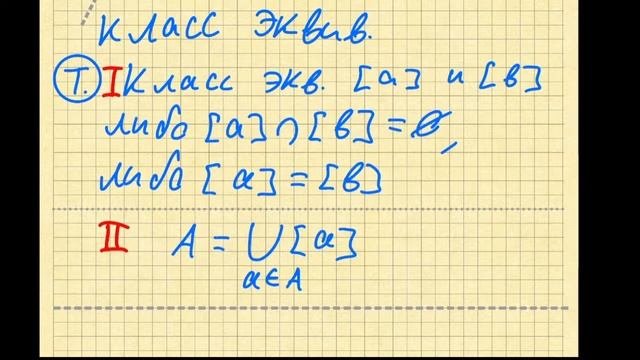 класс эквив.
Т. I Класс экв. [a] и [в]
либо [a] ∩ [в] = ∅,
либо [a] = [в]
II A = ∪ [a]
a ∈ A